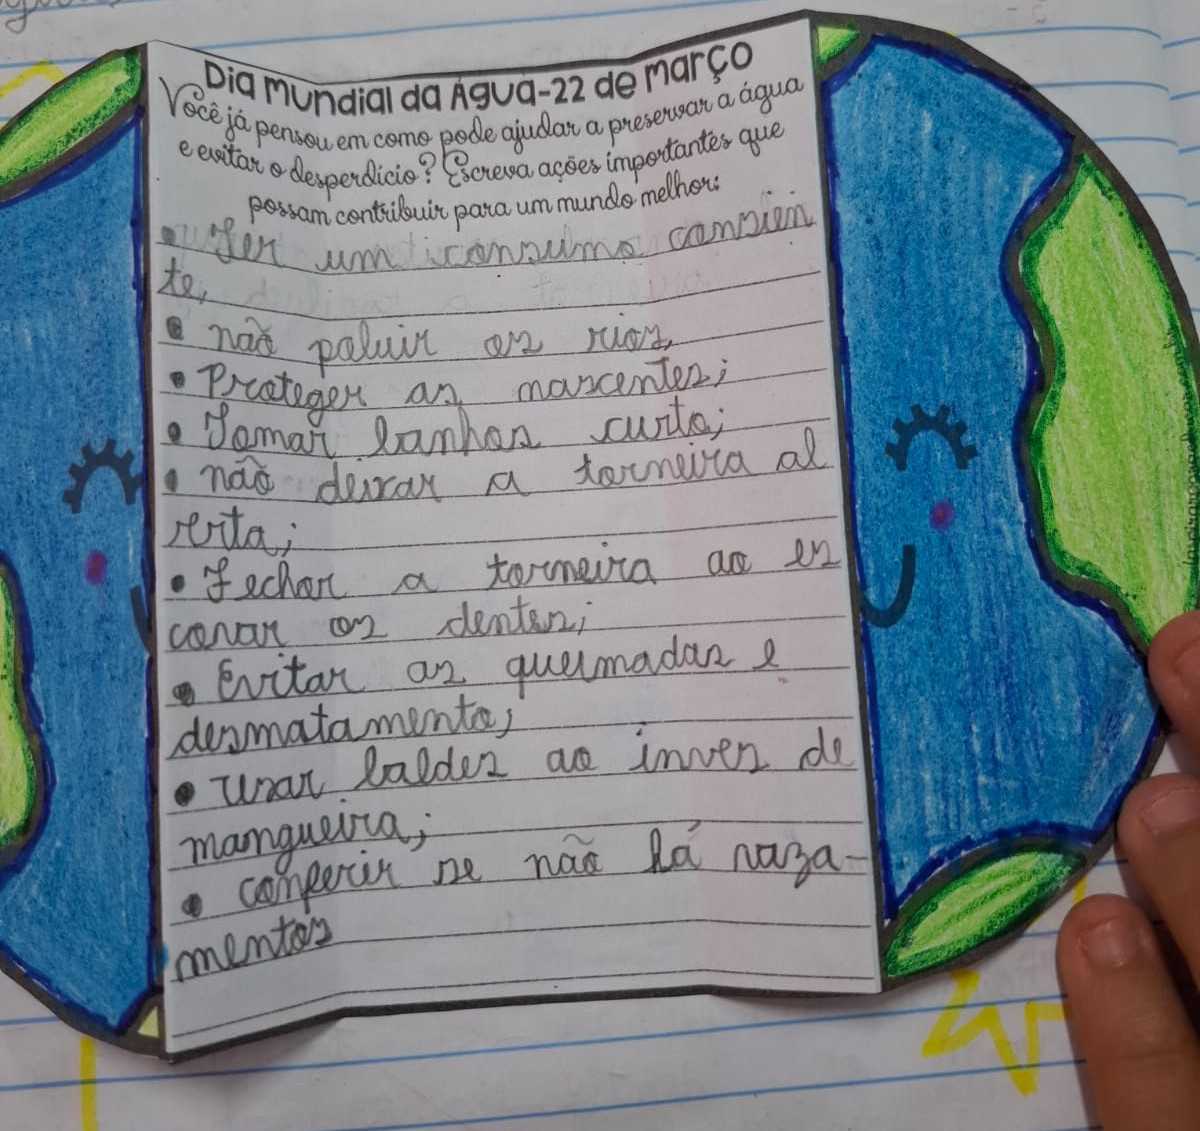 Dia Mundial da Água-22 de março
Você já pensou em como pode ajudar a preservar a água
e evitar o desperdício? Escreva ações importantes que
possam contribuir para um mundo melhor:
• Ter um consumo consien
te,
• não poluir os rios,
• Proteger as nascentes;
• Tomar banhos curto;
• não deixar a torneira al
rerta;
• Fechar a torneira ao es
covar os dentes;
• Evitar as queimadas e
desmatamento;
• Usar baldes ao inves de
mangueira;
• conferir se não há vaza-
mentos